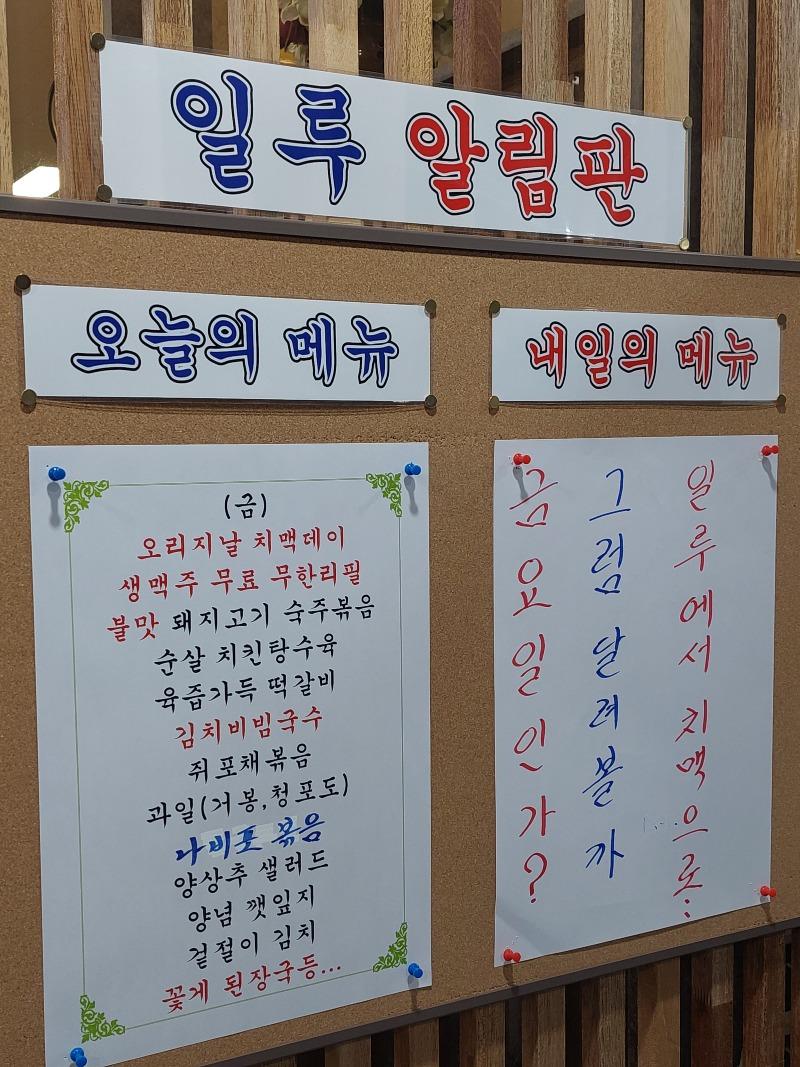 일루 알림판
오늘의 메뉴
(금)
오리지날 치맥데이
생맥주 무료 무한리필
불맛 돼지고기 숙주볶음
순살 치킨탕수육
육즙가득 떡갈비
김치비빔국수
쥐포채볶음
과일(거봉,청포도)
나비포 볶음
양상추 샐러드
양념 깻잎지
겉절이 김치
꽃게 된장국등...
내일의 메뉴
금요일인가?
그럼 달려볼까
일루에서 치맥으로..